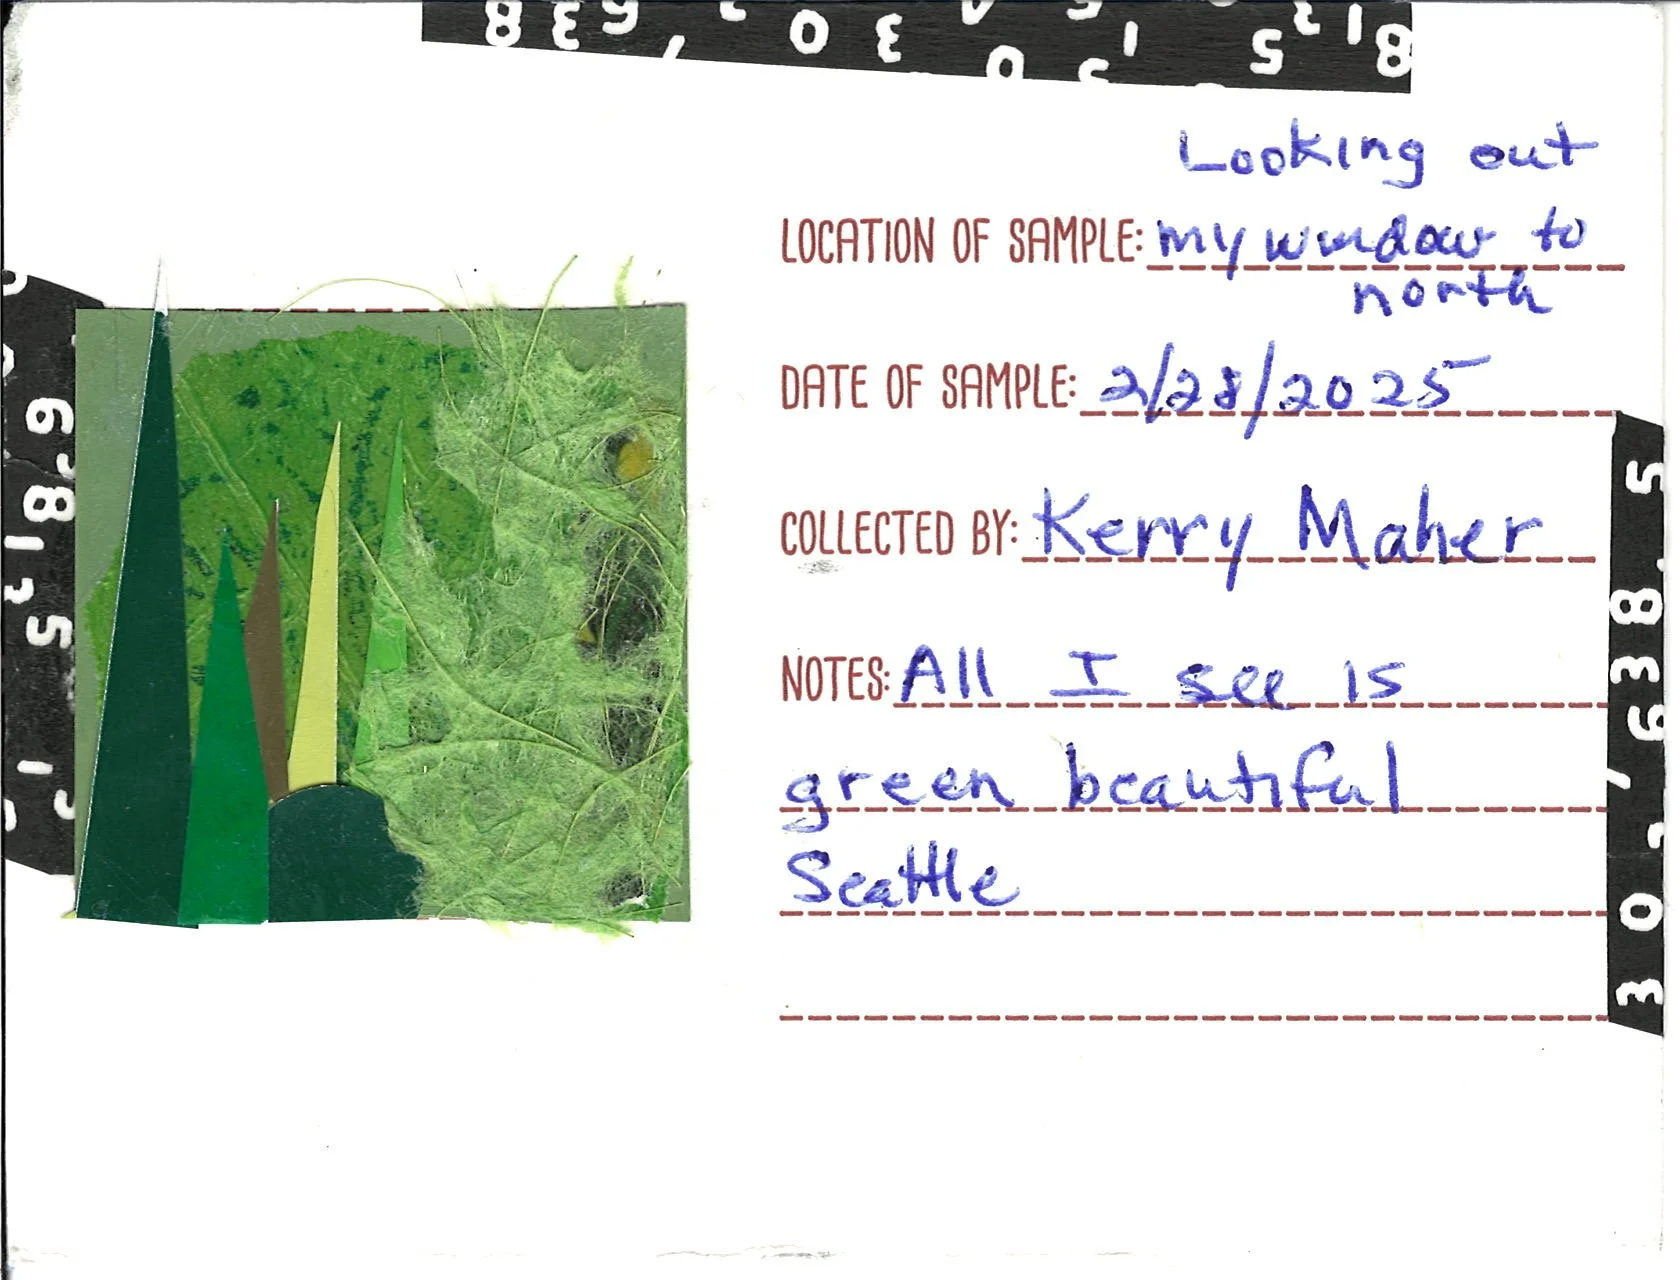 Looking out
LOCATION OF SAMPLE: my window to
north
DATE OF SAMPLE: 2/28/2025
COLLECTED BY: Kerry Maher
NOTES: All I see is
green beautiful
Seattle